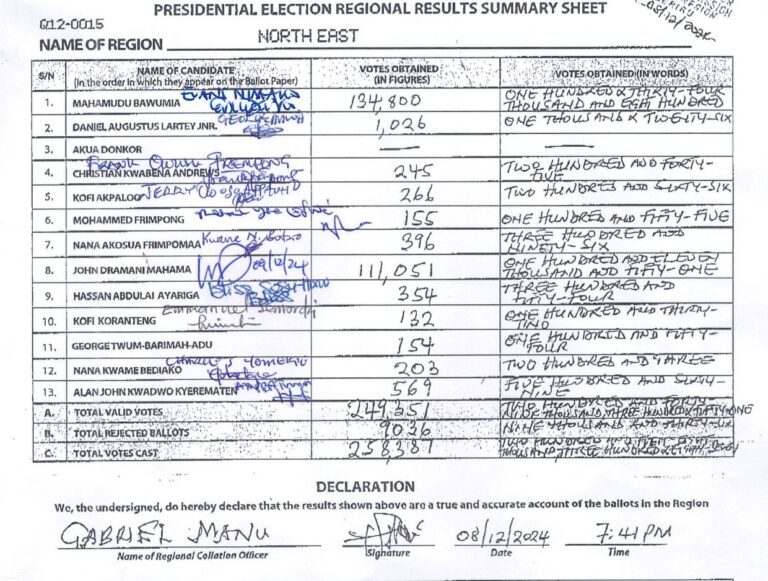 PRESIDENTIAL ELECTION REGIONAL RESULTS SUMMARY SHEET
Q12-0015
08/12/2024
NAME OF REGION NORTH EAST
S/N NAME OF CANDIDATE (In the order in which they appear on the Ballot Paper) VOTES OBTAINED (IN FIGURES) VOTES OBTAINED (IN WORDS)
1. MAHAMUDU BAWUMIA 134,800 ONE HUNDRED & THIRTY-FOUR THOUSAND AND EIGHT HUNDRED
2. DANIEL AUGUSTUS LARTEY JNR. 1,026 ONE THOUSAND & TWENTY-SIX
3. AKUA DONKOR — —
FRANK OWUSU PREMPONG
4. CHRISTIAN KWABENA ANDREWS 245 TWO HUNDRED AND FORTY-FIVE
5. KOFI AKPALOO JERRY 266 TWO HUNDRED AND SIXTY-SIX
6. MOHAMMED FRIMPONG 155 ONE HUNDRED AND FIFTY-FIVE
7. NANA AKOSUA FRIMPOMAA 396 THREE HUNDRED AND NINETY-SIX
8. JOHN DRAMANI MAHAMA 08/12/24 111,051 ONE HUNDRED AND ELEVEN THOUSAND AND FIFTY-ONE
9. HASSAN ABDULAI AYARIGA 354 THREE HUNDRED AND FIFTY-FOUR
Emmanuel
10. KOFI KORANTENG 132 ONE HUNDRED AND THIRTY-TWO
11. GEORGE TWUM-BARIMAH-ADU 154 ONE HUNDRED AND FIFTY-FOUR
12. NANA KWAME BEDIAKO 203 TWO HUNDRED AND THREE
13. ALAN JOHN KWADWO KYEREMATEN 569 FIVE HUNDRED AND SIXTY-NINE
A. TOTAL VALID VOTES 249,351 TWO HUNDRED AND FORTY-NINE THOUSAND THREE HUNDRED & FIFTY-ONE
B. TOTAL REJECTED BALLOTS 9036 NINE THOUSAND AND THIRTY-SIX
C. TOTAL VOTES CAST 258,387 TWO HUNDRED THOUSAND THREE HUNDRED
DECLARATION
We, the undersigned, do hereby declare that the results shown above are a true and accurate account of the ballots in the Region
GABRIEL MANU 08/12/2024 7:41 PM
Name of Regional Collation Officer Signature Date Time